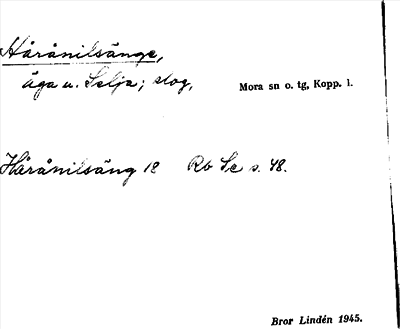 Håránilsänge,
äga u. Selja; slog,
Mora sn o. tg, Kopp. l.
Håránilsäng 18 Rb Se s. 48.
Bror Lindén 1945.